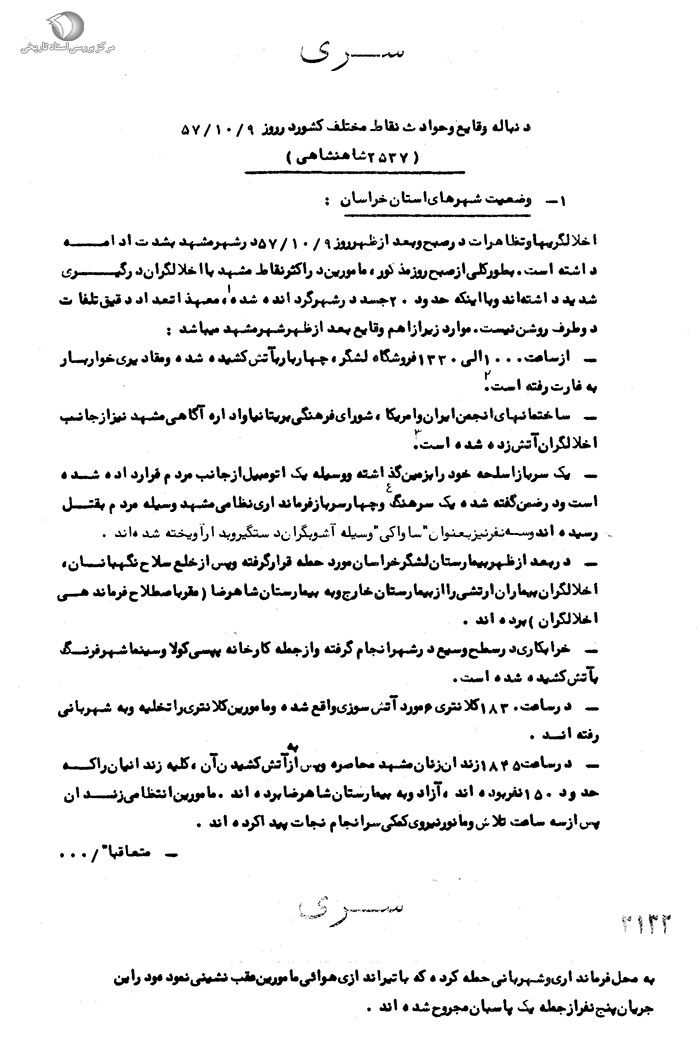 مرکز بررسی اسناد تاریخی
سری
دنباله وقایع و حوادث نقاط مختلف کشور در روز ۵۷/۱۰/۹
(۲۵۳۷ شاهنشاهی)
۱- وضعیت شهرهای استان خراسان :
اخلالگریها و تظاهرات در صبح و بعد از ظهر روز ۵۷/۱۰/۹ در شهر مشهد بشدت ادامه
داشته است. بطور کلی از صبح روز مذکور، مامورین در اکثر نقاط مشهد با اخلالگران درگیری
شدید داشته‌اند و با اینکه حدود ۲۰ جسد در شهر گردانده شده۱، معهذا تعداد دقیق تلفات
دو طرف روشن نیست. موارد زیر از اهم وقایع بعد از ظهر شهر مشهد میباشد :
- از ساعت ۱۰۰۰ الی ۱۳۳۰ فروشگاه لشگر، چهار بار بآتش کشیده شده و مقادیری خواربار
به غارت رفته است۲.
- ساختمانهای انجمن ایران و امریکا، شورای فرهنگی بریتانیا و اداره آگاهی مشهد نیز از جانب
اخلالگران آتش زده شده است۳.
- یک سرباز اسلحه خود را بزمین گذاشته و وسیله یک اتومبیل از جانب مردم فرار داده شده
است و در ضمن گفته شده یک سرهنگ۴ و چهار سرباز فرمانداری نظامی مشهد وسیله مردم بقتل
رسیده اند و سه نفر نیز بعنوان "ساواکی" وسیله آشوبگران دستگیر و بدار آویخته شده‌اند .
- در بعد از ظهر بیمارستان لشگر خراسان مورد حمله قرار گرفته و پس از خلع سلاح نگهبانان،
اخلالگران بیماران ارتشی را از بیمارستان خارج و به بیمارستان شاهرضا (مقر باصطلاح فرماندهی
اخلالگران) برده اند .
- خرابکاری در سطح وسیع در شهر انجام گرفته و از جمله کارخانه پپسی کولا و سینما شهر فرنگ
بآتش کشیده شده است.
- در ساعت ۱۸۳۰ کلانتری ۶ مورد آتش سوزی واقع شده و مامورین کلانتری را تخلیه و به شهربانی
رفته اند .
- در ساعت ۱۸۴۵ زندان زنان مشهد محاصره و پس از به آتش کشیدن آن، کلیه زندانیان را که
حدود ۱۵۰ نفر بوده اند، آزاد و به بیمارستان شاهرضا برده اند . مامورین انتظامی زندان
پس از سه ساعت تلاش و مانور نیروی کمکی سرانجام نجات پیدا کرده اند .
- متعاقبا" /۰۰۰
سری
۳۱۳۲
به محل فرمانداری و شهربانی حمله کرده که با تیراندازی هوائی مامورین عقب نشینی نمودمود را ین
جریان پنج نفر از جمله یک پاسبان مجروح شده اند .